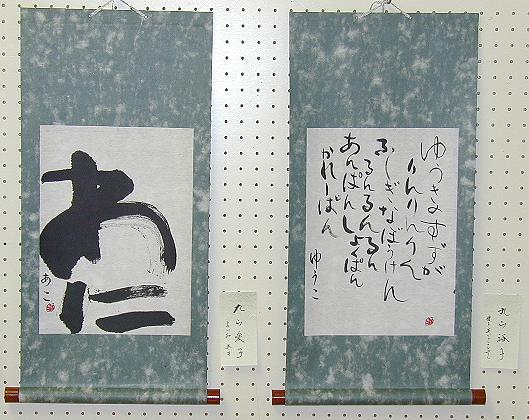 ゆうきのすずが
りんりんりん
ふしぎなぼうけん
るんるんるん
あんぱんしょくぱん
かれーぱん
ゆうこ
丸山
あこ
丸山愛子